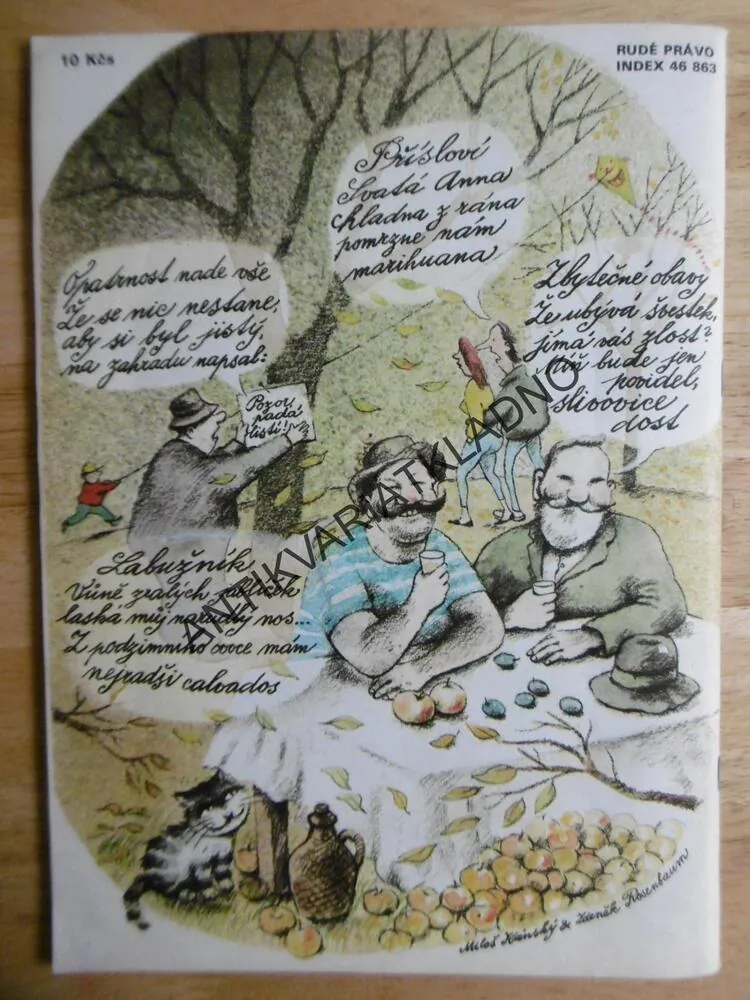 10 Kčs
RUDÉ PRÁVO
INDEX 46 863
Přísloví
Svatá Anna
chladna z rána
pomrzne nám
marihuana
Opatrnost nade vše
Že se nic nestane,
aby si byl jistý,
na zahradu napsal:
Pozor,
padá
listí!
Zbytečné obavy
Že ubývá švestek,
jímá vás zlost?
Míň bude jen
povidel,
slivovice
dost
Labužník
Vůně zralých jablíček
laská můj narudlý nos...
Z podzimního ovoce mám
nejradši calvados
ANTIKVARIATKLADNO
Miloš Kánský & Zdeněk Rosenbaum